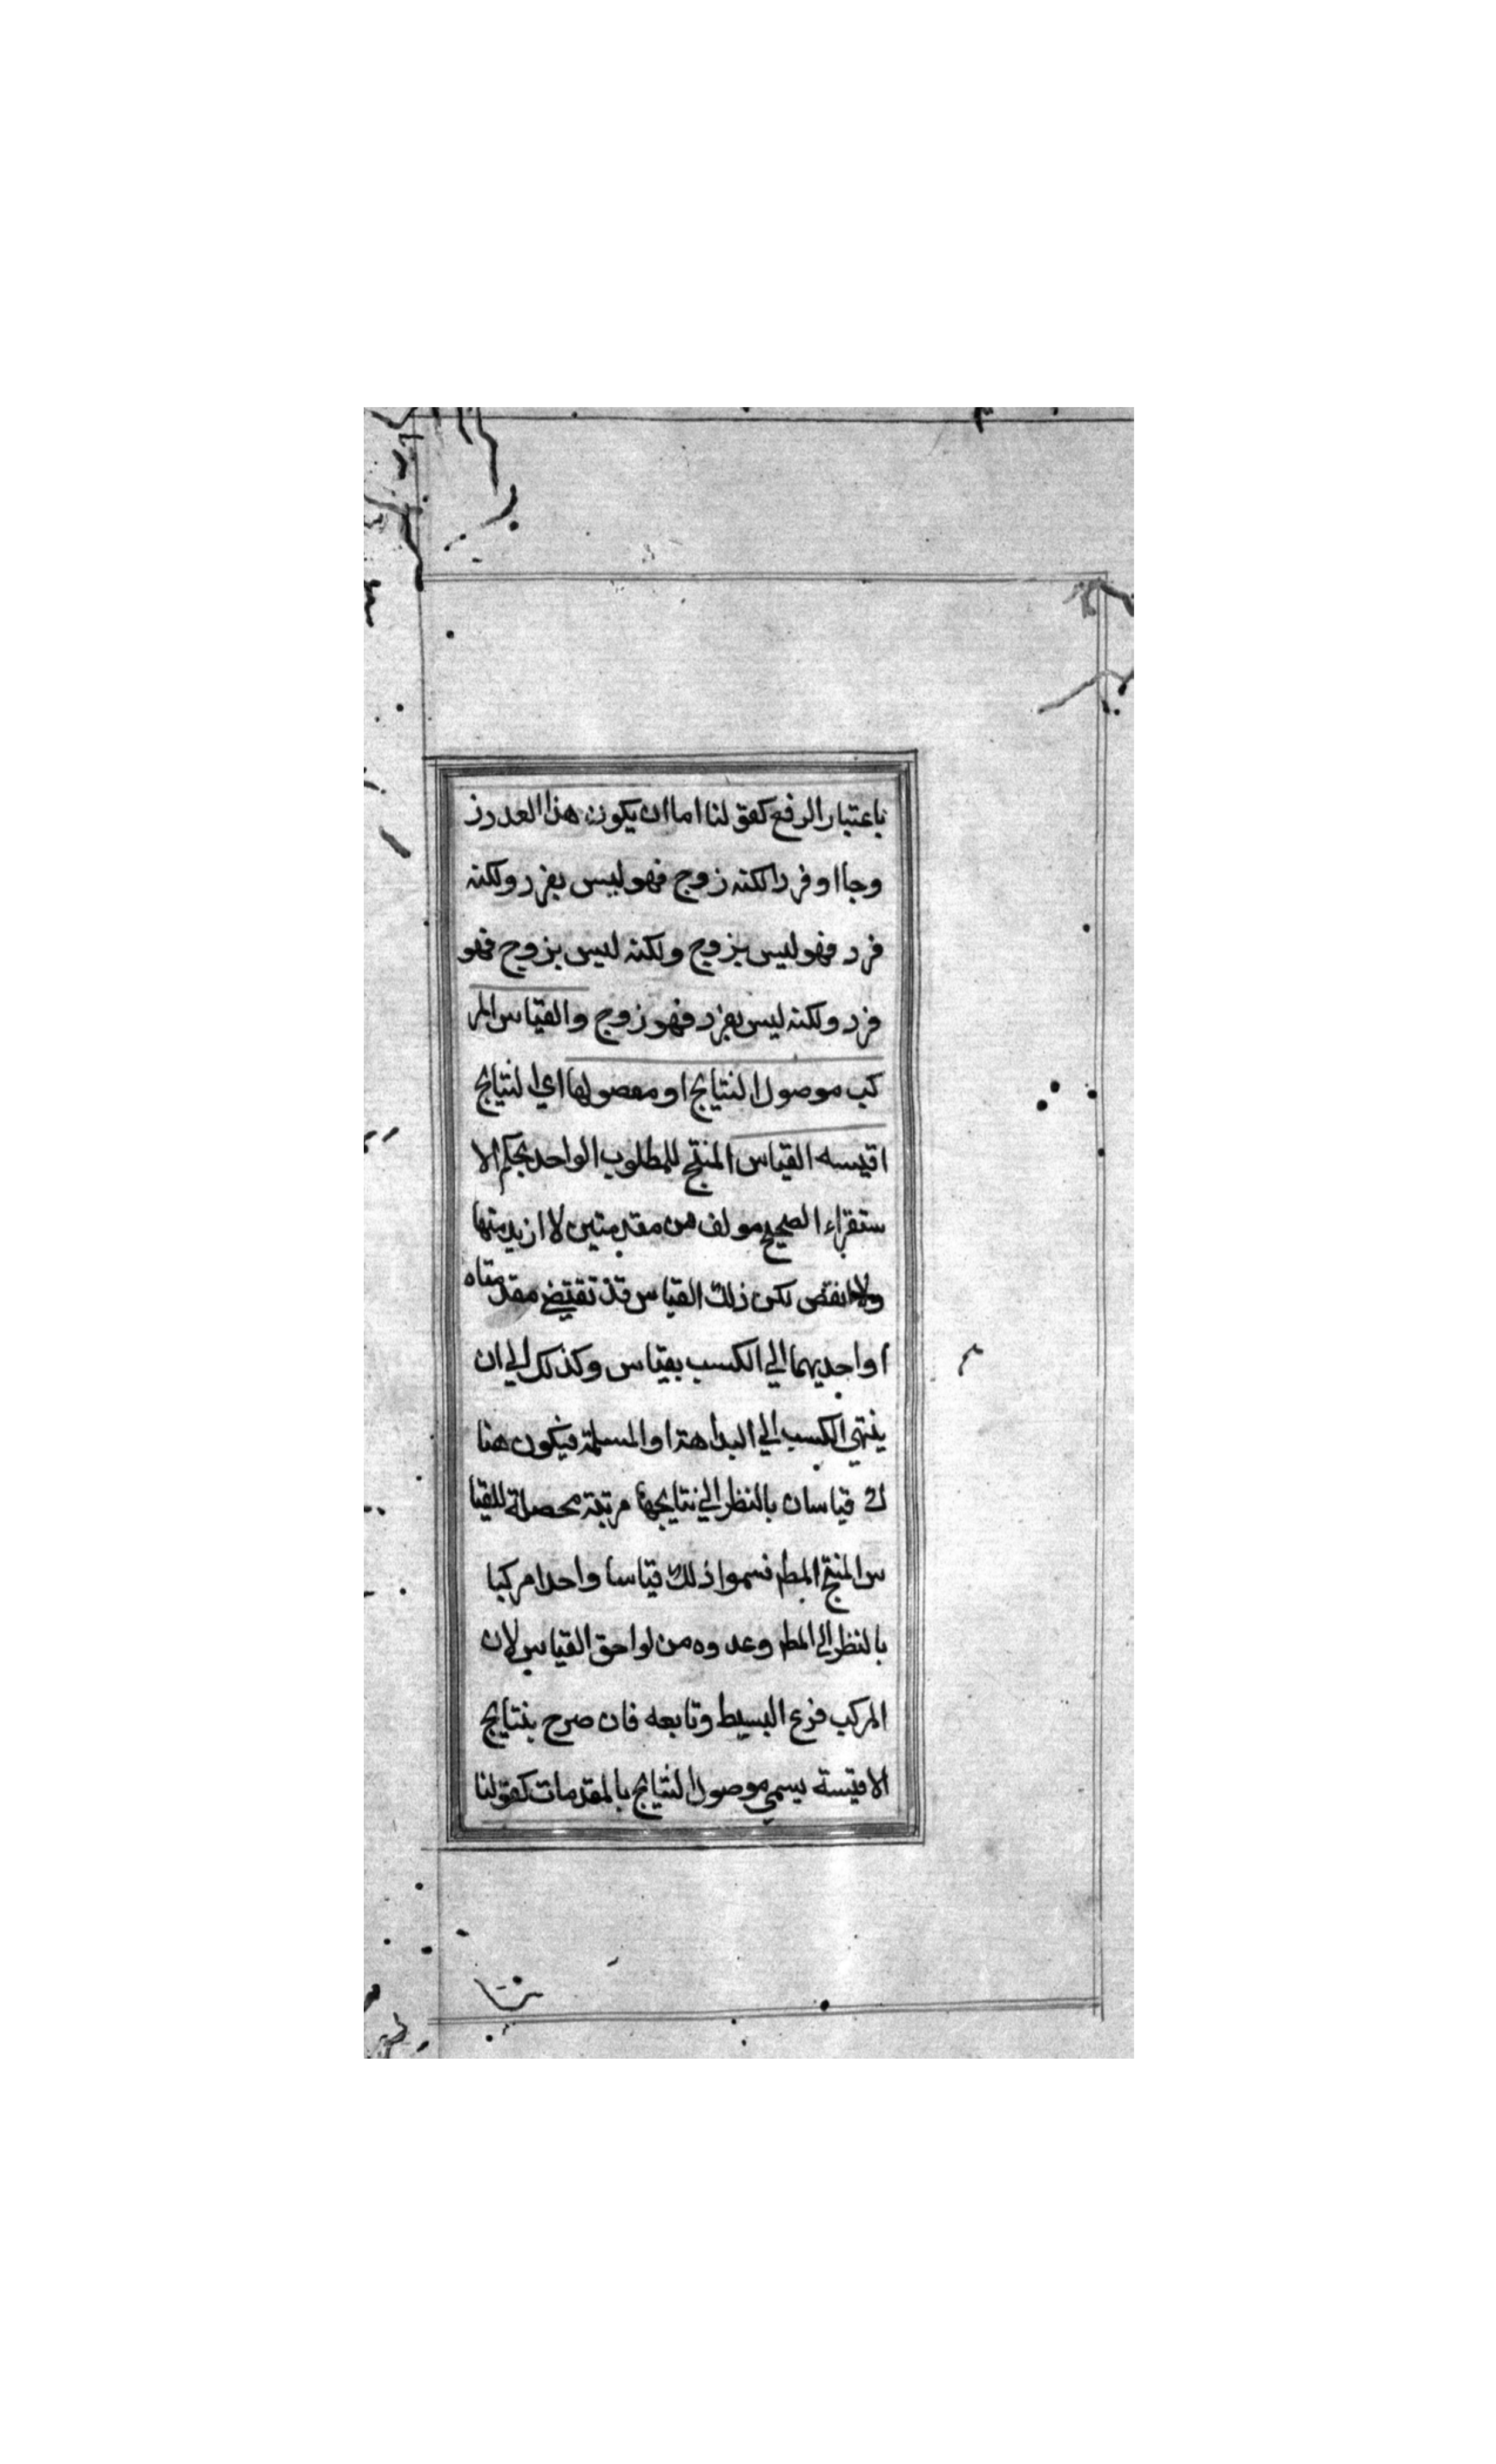 باعتبار الرفع كقولنا اما ان يكون هذا العدد ز
وجا او فردا لكنه زوج فهو ليس بفرد ولكنه
فرد فهو ليس بزوج ولكنه ليس بزوج فهو
فرد ولكنه ليس بفرد فهو زوج والقياس المر
كب موصول النتايج او مفصولها اي النتايج
اقيسه القياس المنتج للمطلوب الواحد بحكم الا
ستقراء الصحيح مولف من مقدمتين لا ازيد منها
ولا انقص لكن ذلك القياس قد تقتضى مقدمتاه
او احديهما الي الكسب بقياس وكذلك الي ان
ينتهي الكسب الي البداهة او المسلمة فيكون هنا
ك قياسان بالنظر الي نتايجها مرتبة محصلة للقيا
س المنتج المط فسموا ذلك قياسا واحدا مركبا
بالنظر الي المط وعدوه من لواحق القياس لان
المركب فرع البسيط وتابعه فان صرح بنتايج
الاقيسة يسمي موصول النتايج بالمقدمات كقولنا